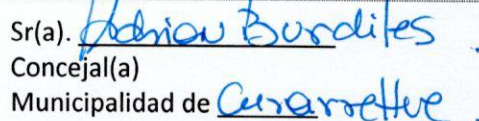 Sr(a). Adrian Burdiles
Concejal(a)
Municipalidad de Curarrehue